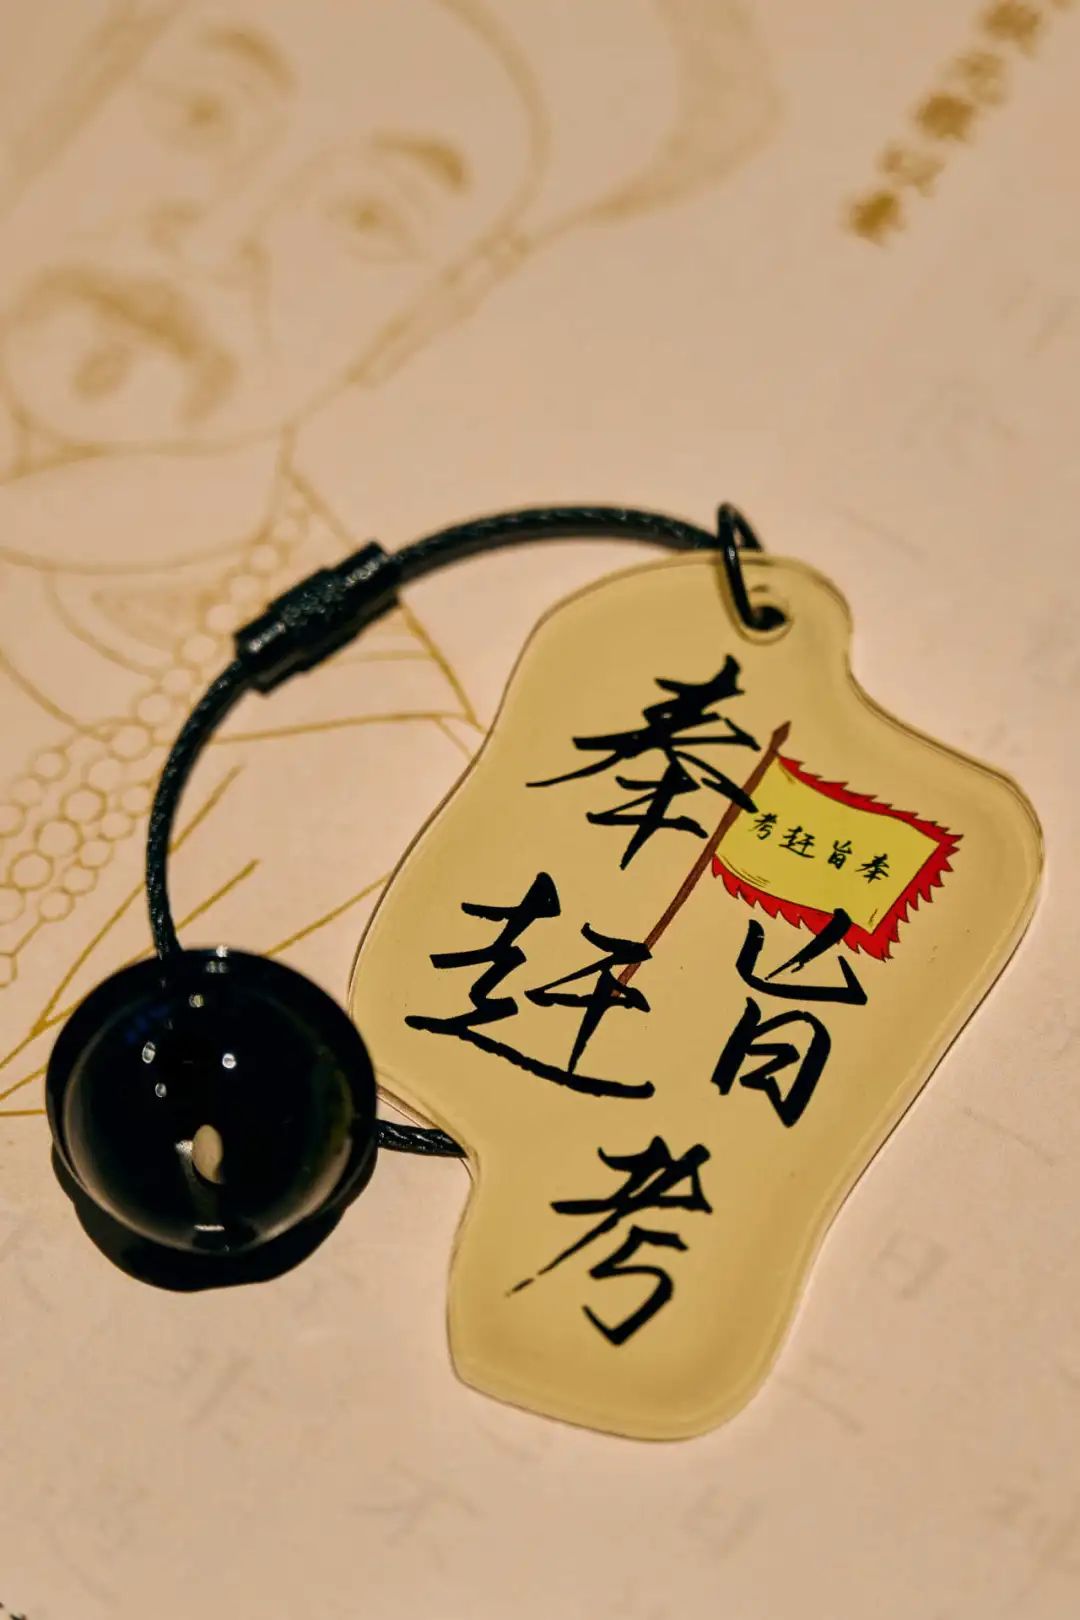 奉旨
赶考
考赶旨奉